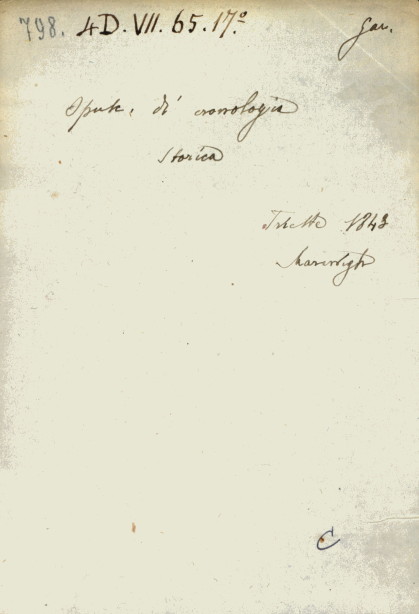 798. 4D. VII. 65. 17º
Gar.
Opusc. di cronologia
Storica
Trieste 1843
Marenigh
C